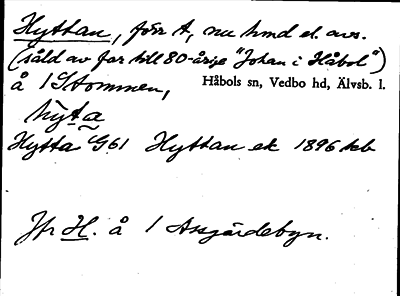 Hyttan, förr A, nu hmd el. avs.
(såld av far till 80-årige "Johan i Håbol")
å 1 Stommen, Håbols sn, Vedbo hd, Älvsb. l.
hỳta
Hytta G61 Hyttan ek 1896 kb
Jfr H. å 1 Assjärdebyn.